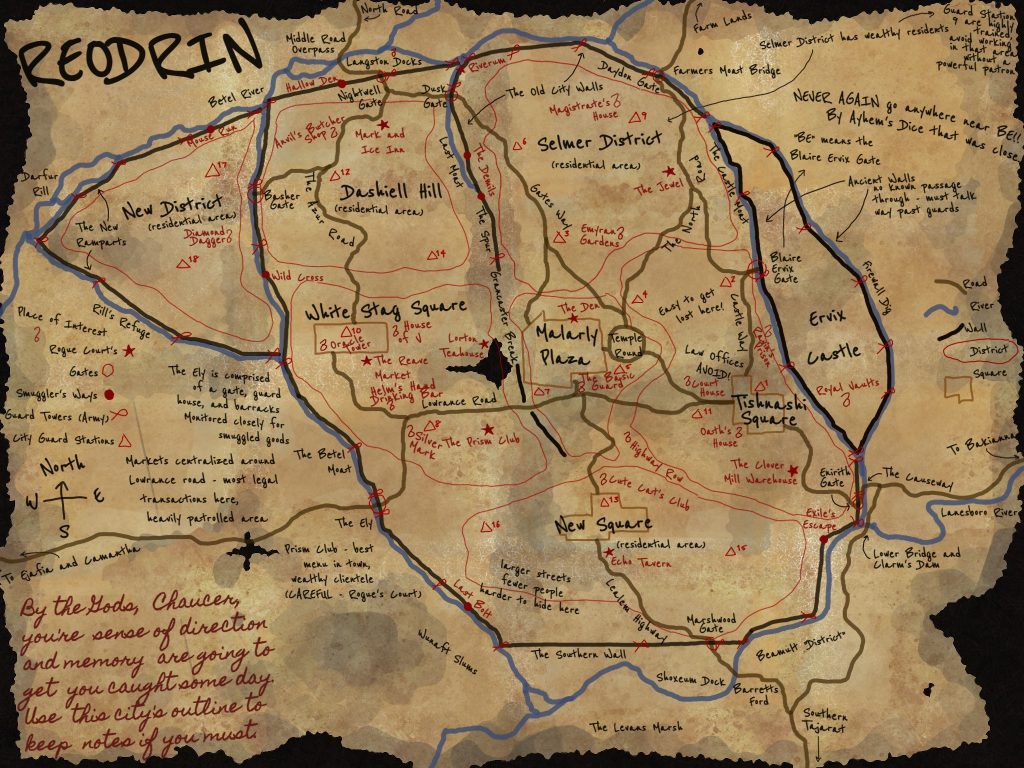 REODRIN
North Road
Middle Road
Overpass
Langston Docks
Farm Lands
Guard Station
9 are highly
trained,
avoid working
in that area
without a
powerful patron
Selmer District has wealthy residents
Betel River
Hallow Den
Nightwell
Gate
Dusk
Gate
Riverum
The Old City Walls
Daydon Gate
Farmers Moat Bridge
NEVER AGAIN go anywhere near BE!!
By Ayhem's Dice that was close
"BE" means the
Blaire Ervix Gate
Ancient Walls
no known passage
through - must talk
way past guards
Mouse Run
Anvil's Butcher
Shop
Mark and
Ice Inn
Last Moat
The Demils
Magistrate's
House
9
6
Selmer District
(residential area)
The Jewel
The Castle Moat
Darfur
Rill
17
New District
(residential area)
Diamond
Dagger
18
The New
Ramparts
Basher
Gate
12
Dashiell Hill
(residential area)
The Azure Road
14
The Spur
Grancaster Break
Gates Way
3
Emyran
Gardens
The North Road
Blaire
Ervix
Gate
Firewall Dig
Wild Cross
Rill's Refuge
Place of Interest
Rogue Court's
Gates
Smuggler's Ways
Guard Towers (Army)
City Guard Stations
Road
River
Wall
District
Square
White Stag Square
10
Oracle
Tower
House
of V
The Reave
Market
Helm's Hand
Drinking Bar
Lorton
Teahouse
The Den
Malarly
Plaza
Temple
Round
4
2
5
7
The Basic
Guard
Easy to get
lost here!
Castle Way
Law Offices
AVOID!
Court
House
1
Tishnashi
Square
Ervix
Castle
Royal Vaults
The Ely is comprised
of a gate, guard
house, and barracks
Monitored closely for
smuggled goods
Markets centralized around
Lowrance road - most legal
transactions here,
heavily patrolled area
North
W
E
S
Lowrance Road
8
Silver
Mark
The Prism Club
11
Oath's
House
Highway Row
The Clover
Mill Warehouse
Exirith
Gate
The Causeway
To Bakianna
Lanesboro River
The Betel
Moat
The Ely
Cute Cat's Club
13
New Square
(residential area)
Echo Tavern
15
16
Exile's
Escape
Lower Bridge and
Clarm's Dam
To Ejafia and Camantha
Prism Club - best
menu in town,
wealthy clientele
(CAREFUL - Rogue's Court)
larger streets
fewer people
harder to hide here
Last Bolt
Lealem Highway
Marshwood
Gate
The Southern Wall
Beamult District
Wunaft Slums
Shoxeum Dock
Barretts
Ford
Southern
Tajarat
The Levans Marsh
By the Gods, Chaucer,
you're sense of direction
and memory are going to
get you caught some day.
Use this city's outline to
keep notes if you must.